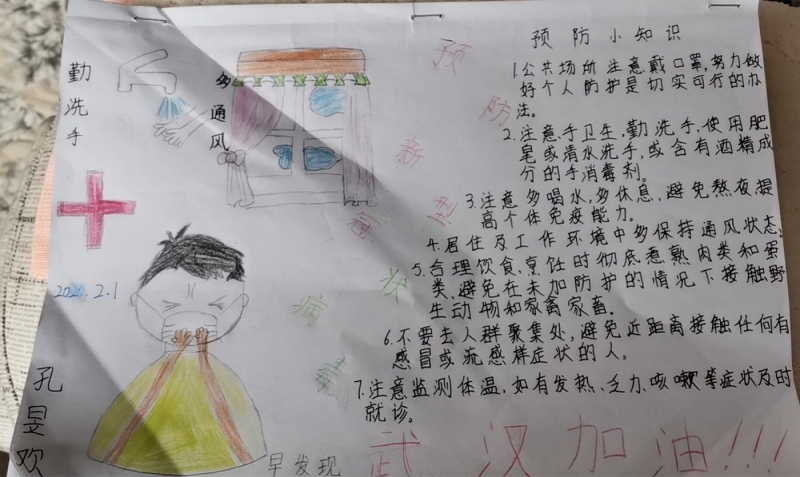 勤洗手
多通风
预防新型冠状病毒
预防小知识
1.公共场所注意戴口罩,努力做
好个人防护是切实可行的办
法。
2.注意手卫生,勤洗手,使用肥
皂或清水洗手,或含有酒精成
分的手消毒剂。
3.注意多喝水,多休息,避免熬夜,提
高个体免疫能力。
4.居住及工作环境中多保持通风状态.
5.合理饮食,烹饪时彻底煮熟肉类和蛋
类,避免在未加防护的情况下接触野
生动物和家禽家畜。
6.不要去人群聚集处,避免近距离接触任何有
感冒或流感样症状的人。
7.注意监测体温,如有发热、乏力、咳嗽等症状及时
就诊。
2020.2.1
孔昱欢
早发现
武汉加油!!!